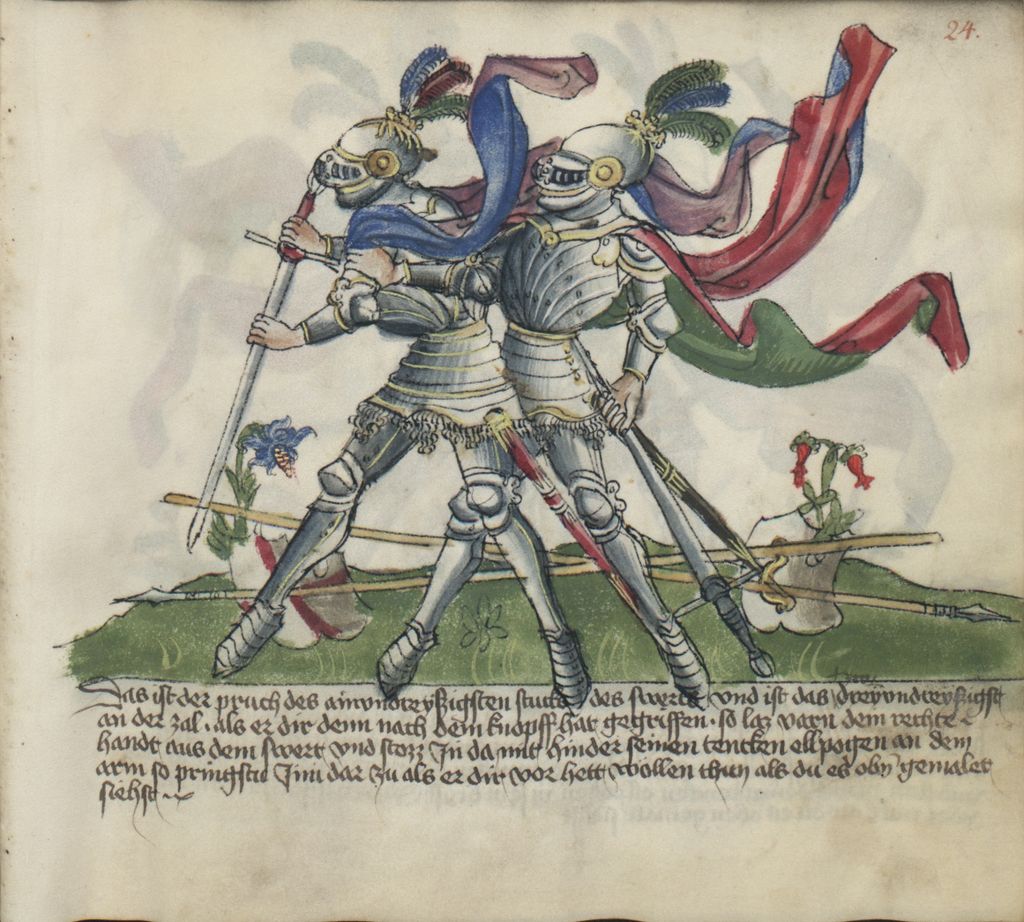 24.
Das ist der pruch des ainvndreyssigsten stucks des swertz vnd ist das dreyvndreyssigst
an der zal · als er dir denn nach dem knopff hat gegriffen · so laz varn dein rechte
handt aus dem swert vnd stozz In da mit hinder seinen tencken ellpogen an dem
arm so pringstu Inn dar zu als er dir vor hett wollen thun als du es obn gemalet
siehst